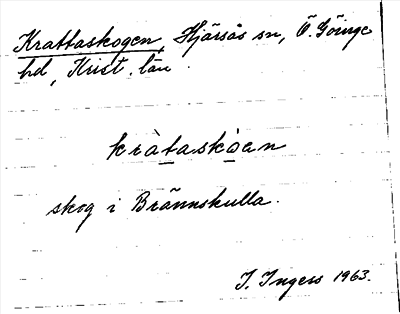 Krattaskogen, Hjärsås sn, Ö. Göinge
hd, Krist. län.
kràtaskòen
skog i Brännskulla.
I. Ingers 1963.